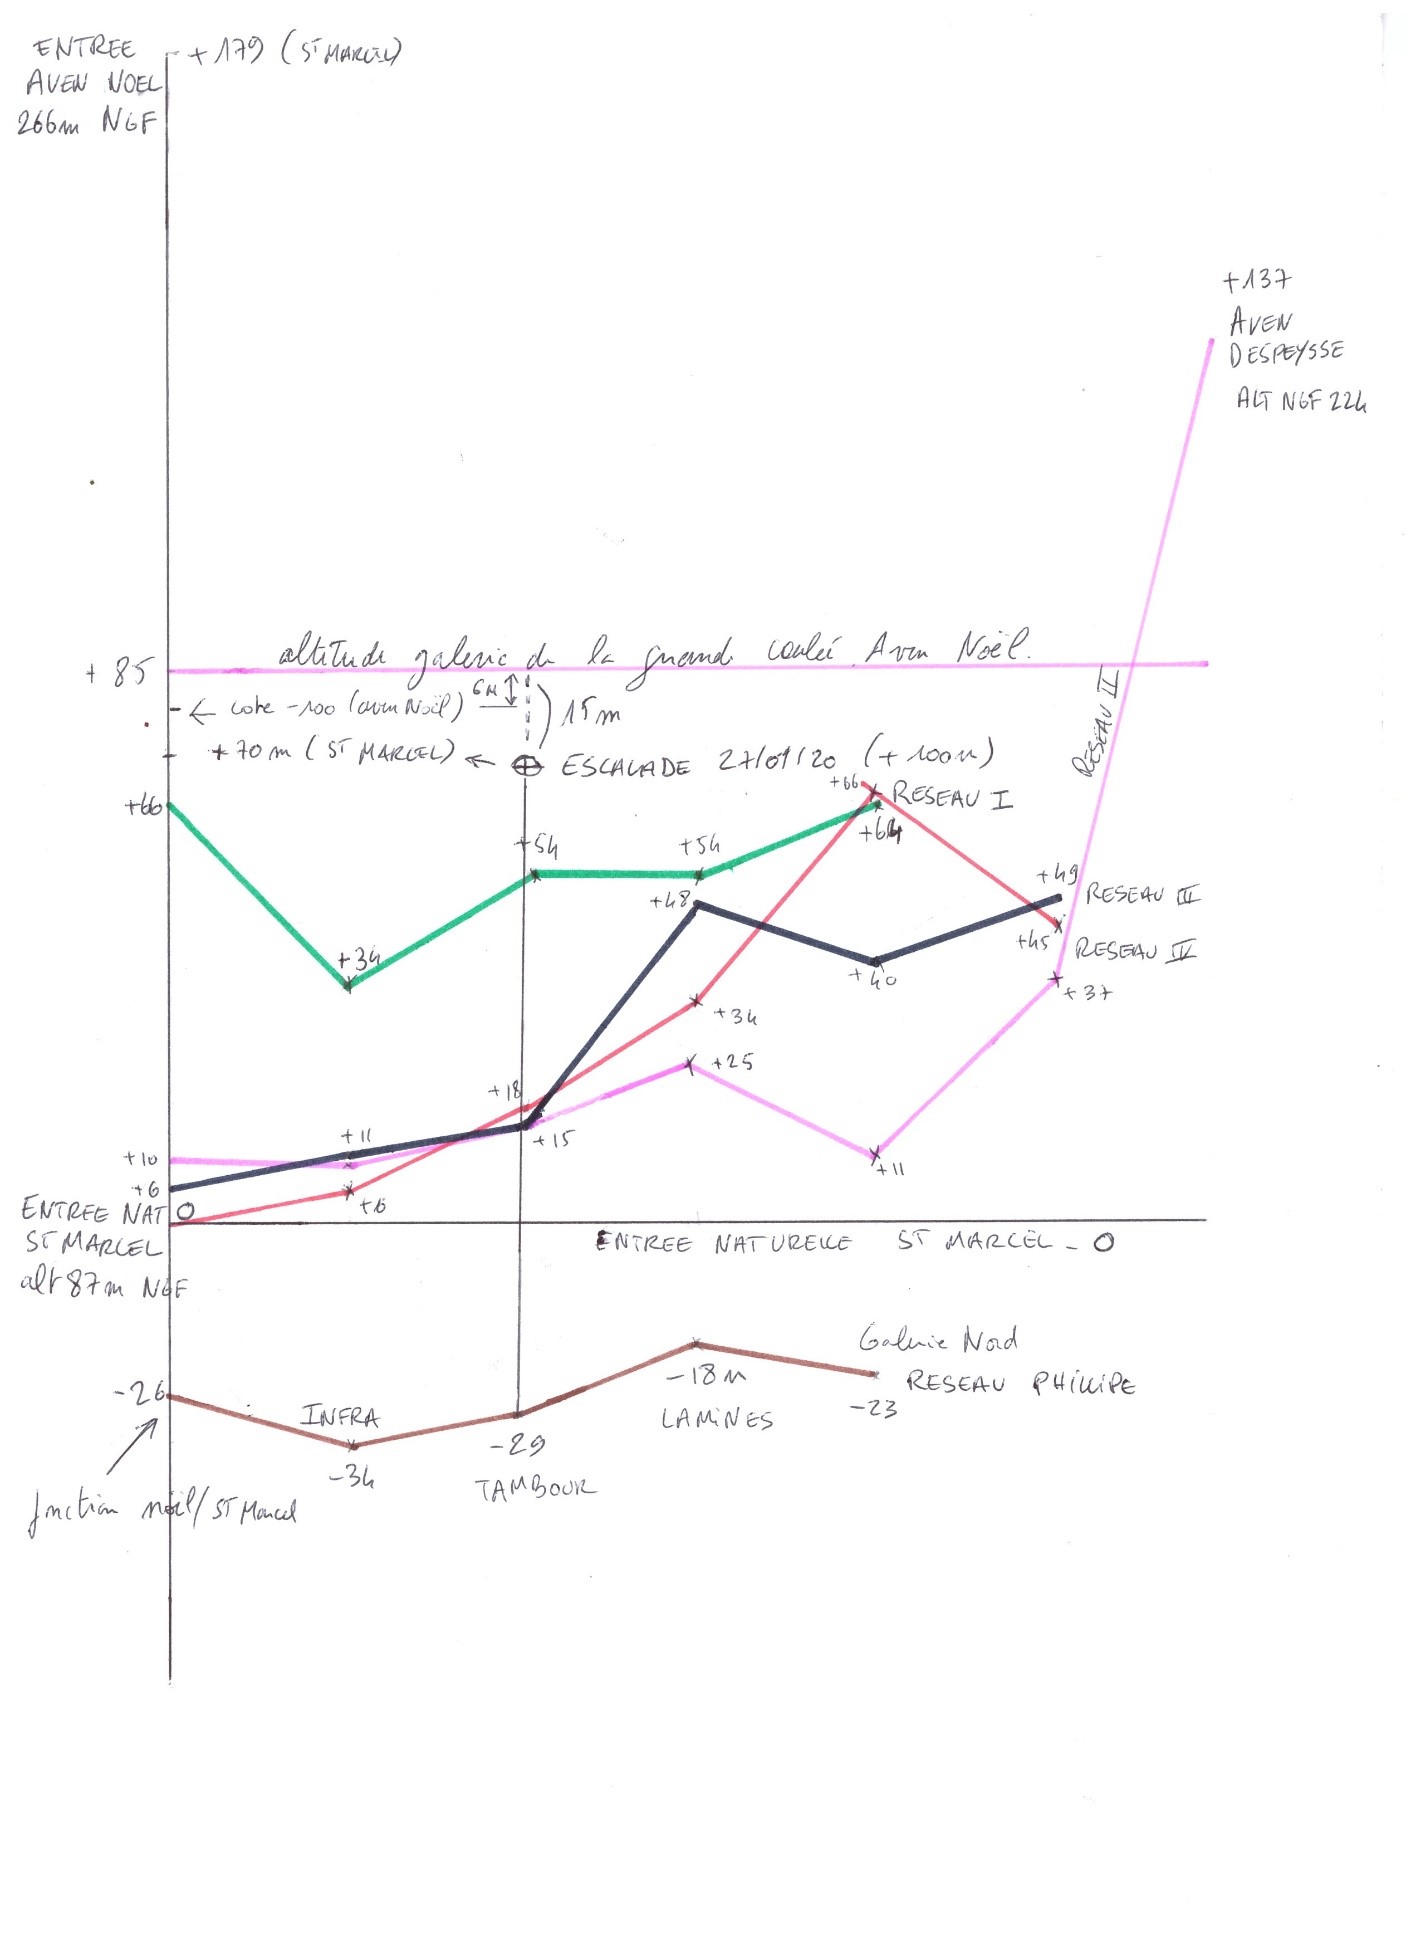 ENTREE
AVEN NOEL
266m NGF
+179 (ST MARCEL)
+137
AVEN
DESPEYSSE
ALT NGF 224
altitude galerie de la grande coulée Aven Noël.
+ 85
6M
← cote -100 (aven Noël)
15m
+ 70m (ST MARCEL) ←
ESCALADE 27/01/20 (+ 100m)
RESEAU II
+66
+66
RESEAU I
+64
+54
+54
+34
+48
+49
RESEAU III
+45
RESEAU IV
+40
+37
+34
+25
+18
+15
+11
+11
+10
+6
+6
ENTREE NAT 0
ST MARCEL
alt 87m NGF
ENTREE NATURELLE ST MARCEL - 0
Galerie Nord
RESEAU PHILIPE
-23
-18m
LAMINES
-26
INFRA
-34
-29
TAMBOUR
jonction noël/ST Marcel